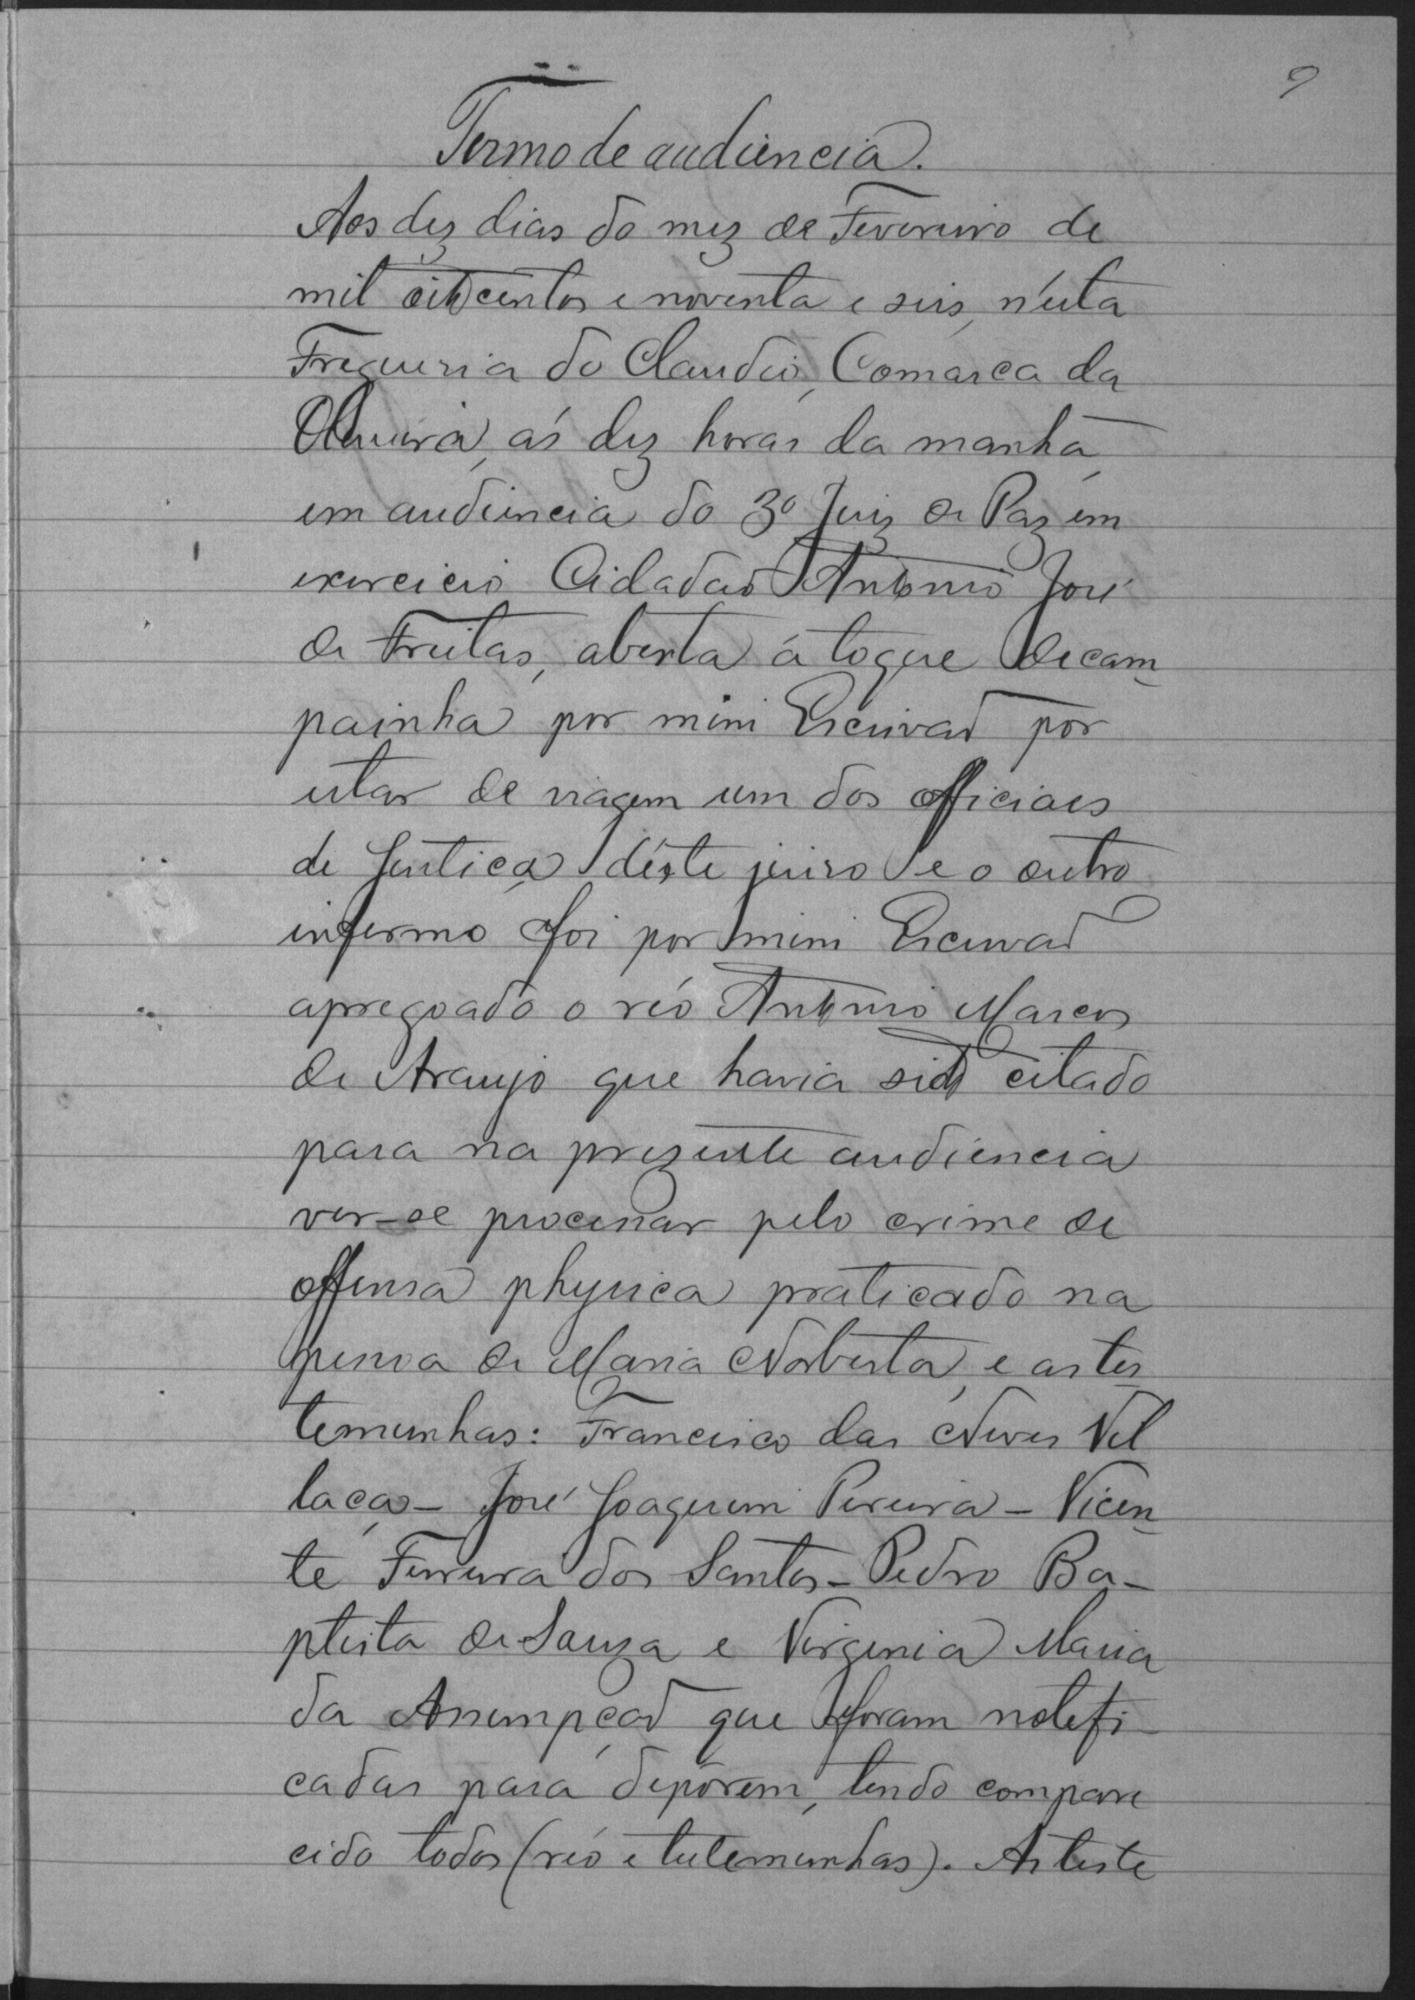 9
Termo de audiencia.
Aos dez dias do mez de Fevereiro de
mil oitocentos e noventa e seis, n'esta
Freguesia do Claudio, Comarca da
Oliveira, ás dez horas da manhã,
em audiencia do 3º Juiz de Paz em
exercicio Cidadão Antonio José
de Freitas, aberta á toque de cam-
painha por mim Escrivão por
estar de viagem um dos officiaes
de Justiça déste juiso e o outro
infermo foi por mim Escrivão
apregoado o réo Antonio Marcos
de Araujo que havia sido citado
para na prezente audiencia
ver-se processar pelo crime de
offensa physica praticado na
pessoa de Maria Norberta, e as tes
temunhas: Francisco das Neves Vil
laça - José Joaquim Pereira - Vicen-
te Ferreira dos Santos - Pedro Ba-
ptista de Souza e Virginia Maria
da Assumpção que foram notefi-
cadas para depôrem, tendo compare
cido todos (réo e testemunhas). As teste